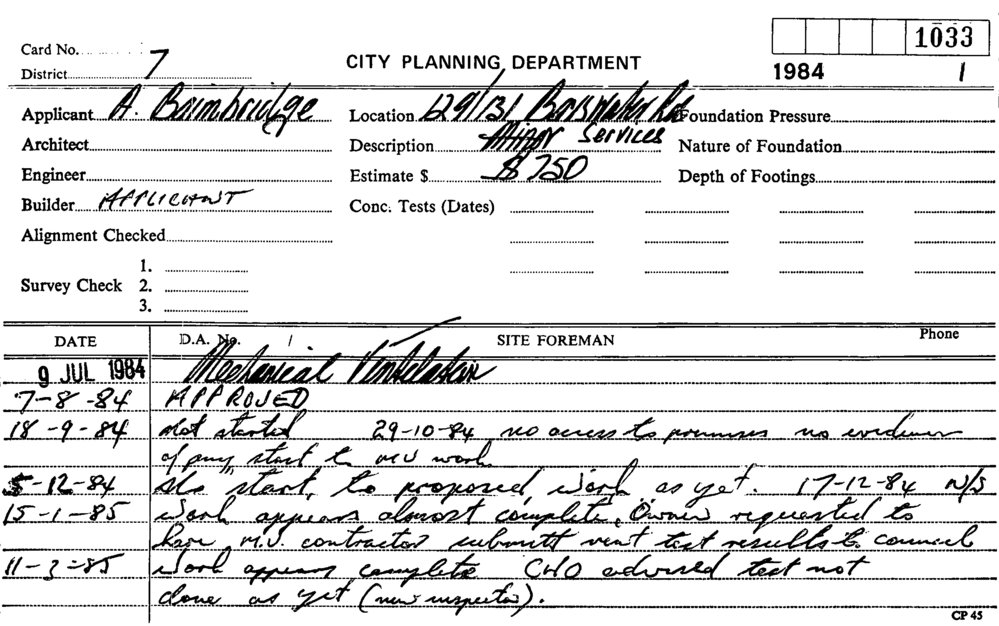 1033
Card No.
7
District
CITY PLANNING DEPARTMENT
1984 1
Applicant A. Baimbridge Location 129/131 Bayswater Rd Foundation Pressure
Architect Description Minor Services Nature of Foundation
Engineer Estimate $ $ 750 Depth of Footings
Builder APPLICANT Conc. Tests (Dates)
Alignment Checked
1.
Survey Check 2.
3.
DATE D.A. No. / SITE FOREMAN Phone
9 JUL 1984 Mechanical Ventilation
7-8-84 APPROVED
18-9-84 Not started 29-10-84 no access to premises no evidence
of any start to M.V work
5-12-84 No start to proposed work as yet. 17-12-84 N/S
15-1-85 Work appears almost complete, Owner requested to
have M.V. contractor submitt vent test results to council
11-3-85 Work appears complete CHO advised test not
done as yet (new inspector).
CP 45